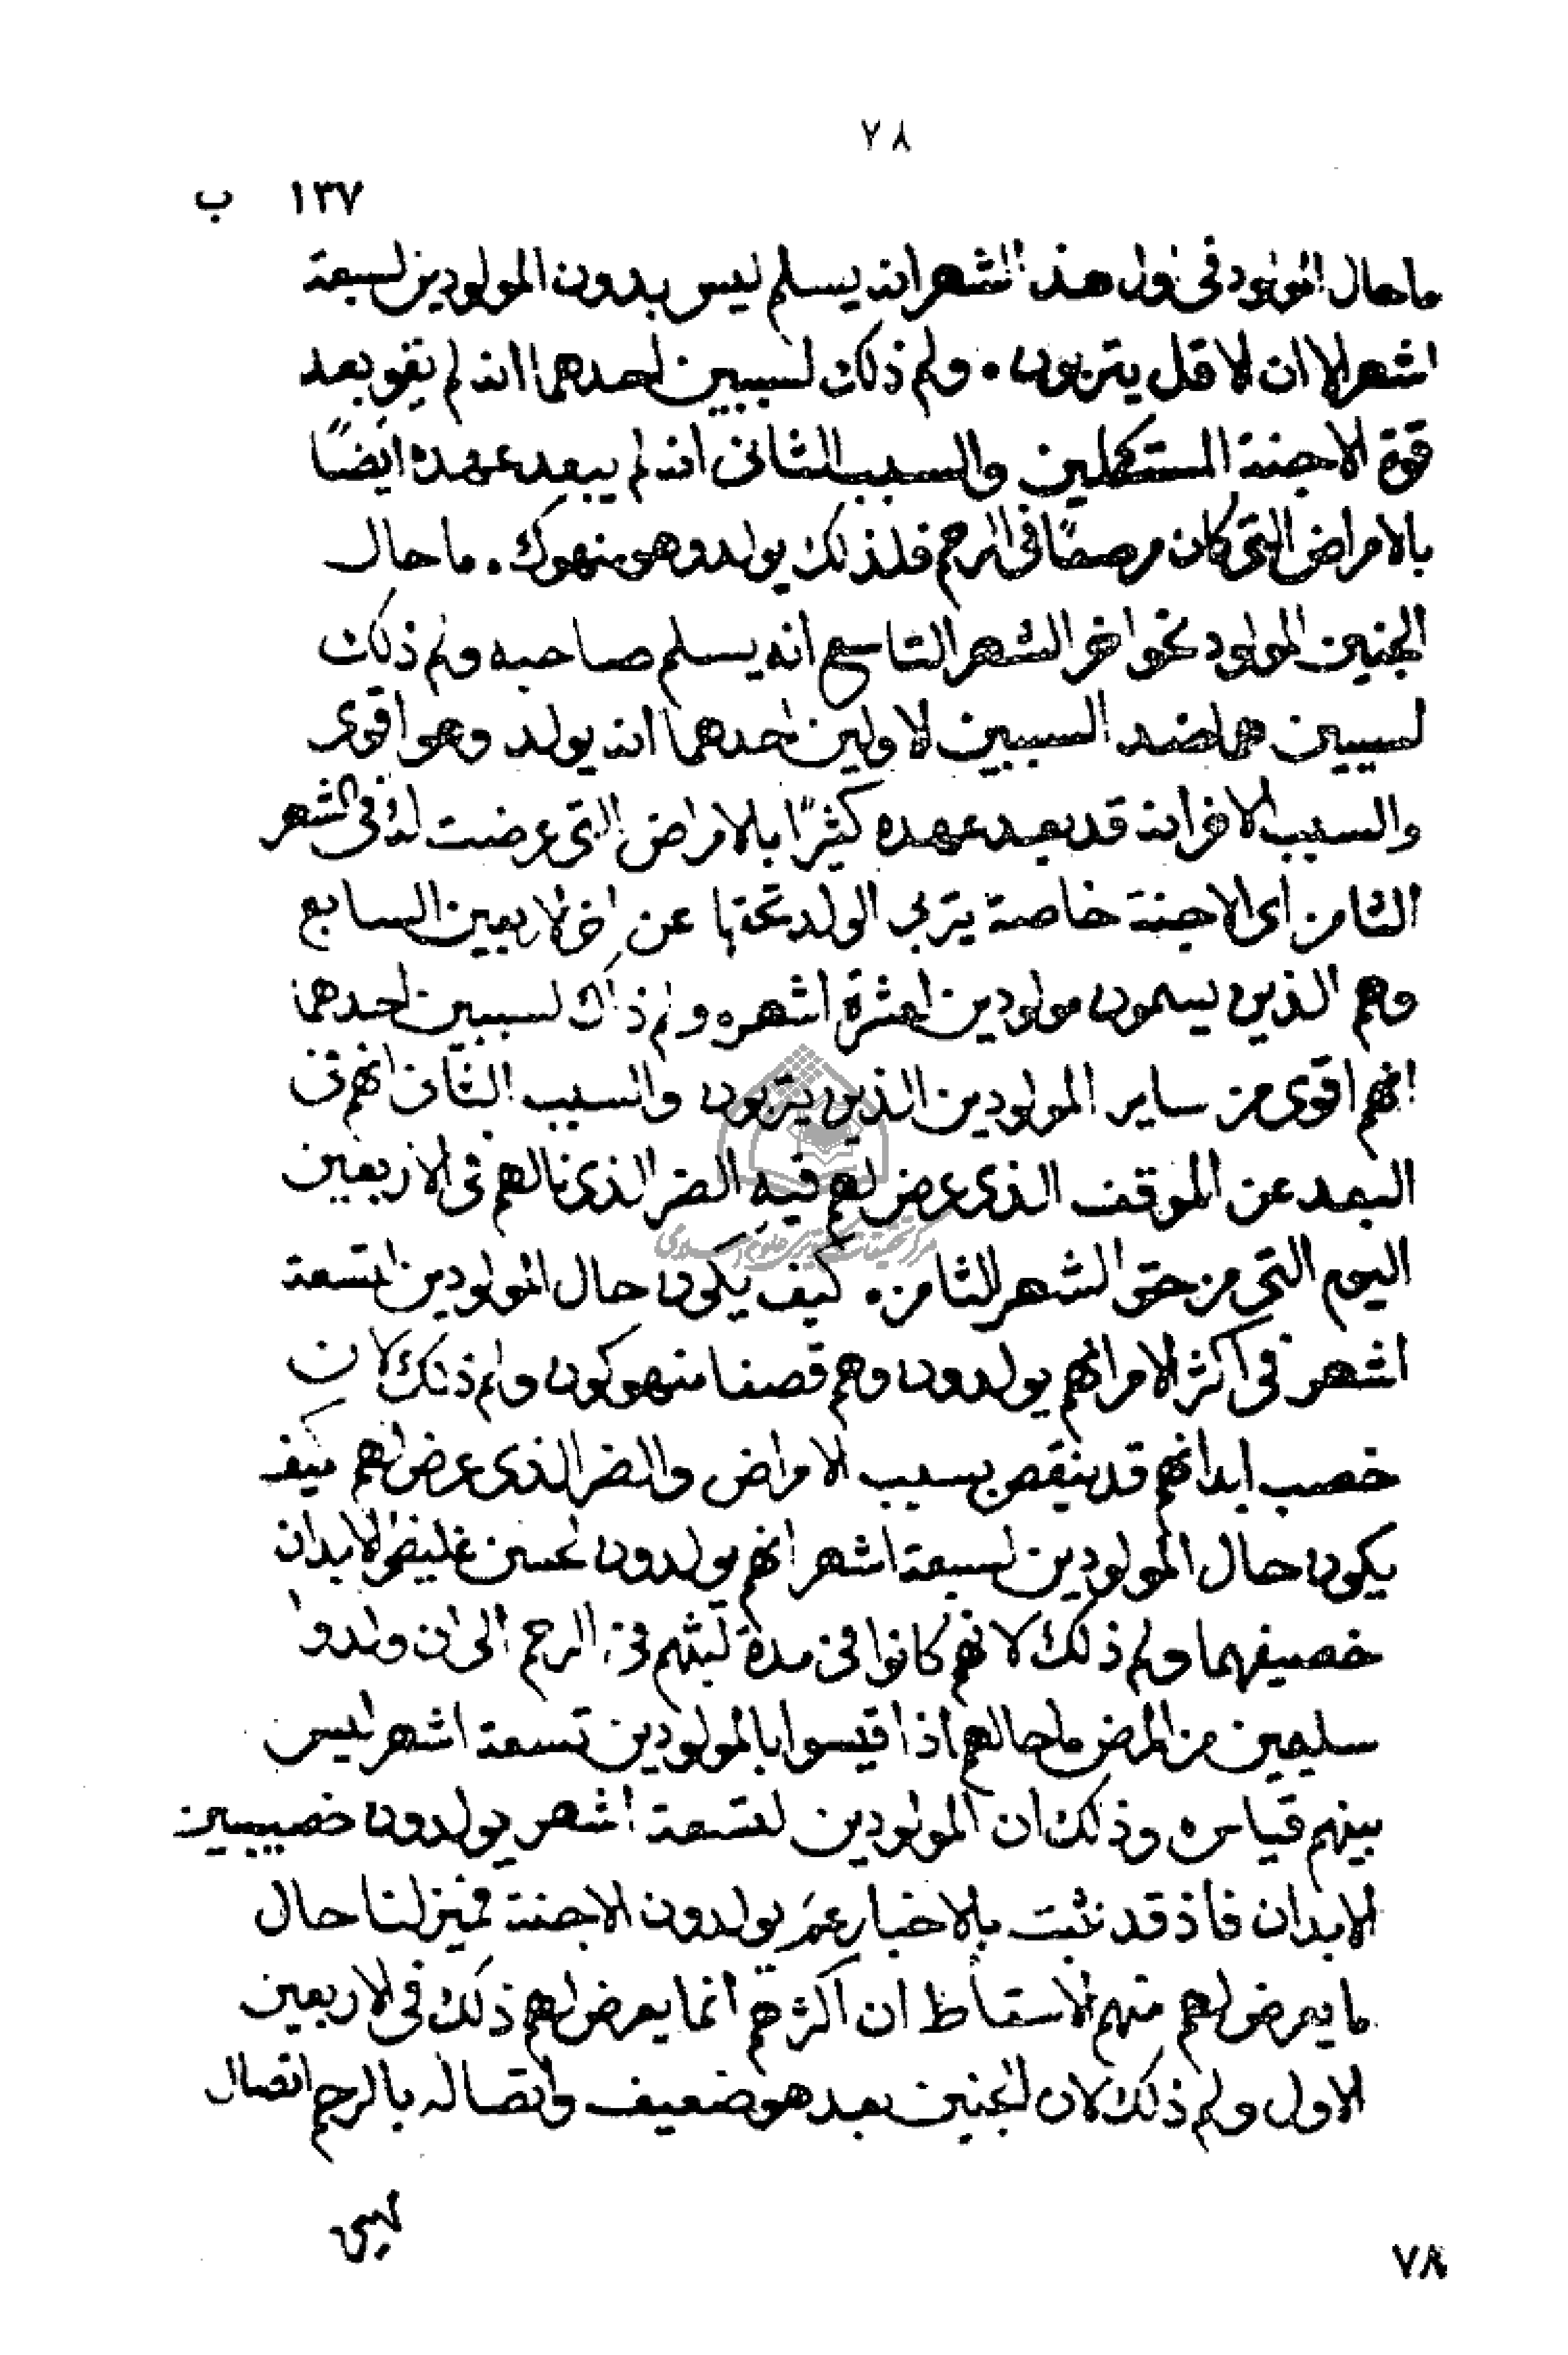 ٧٨
١٣٧ ب
ما حال المولود فى اول هذا الشهر انه يسلم ليس بدون المولودين لسبعة
اشهر الا ان لاقل يتربون . ولم ذلك لسببين احدهما انه لم يقو بعد
قوة الاجنة المستكملين والسبب الثانى انه لم يبعد عهده ايضًا
بالامراض التى كان مرضًا فى الرحم فلذلك يولد وهو منهوك . ما حال
الجنين المولود نحو اخر الشهر التاسع انه يسلم صاحبه ولم ذلك
لسببين هما ضد السببين لاولين احدهما انه يولد وهو اقوى
والسبب الاخر انه قد بعد عهده كثيرًا بالامراض التى عرضت له فى الشهر
الثامن اى الاجنة خاصة يتربى الولد تحتها عن اخر لاربعين السابع
وهم الذين يسمون مولودين لعشرة اشهر ولم ذاك لسببين احدهما
انهم اقوى من ساير المولودين الذين يتربون والسبب الثانى انهم فى
البعد عن الموقف الذى عرض لهم فيه الضر الذى نالهم فى الاربعين
اليوم التى من حق الشهر الثامن . كيف يكون حال المولودين لتسعة
اشهر فى اكثر الامر انهم يولدون وهم قضفا منهوكون ولم ذلك لان
خصب ابدانهم قد ينقص بسبب الامراض والضر الذى عرض لهم كيف
يكون حال المولودين لسبعة اشهر انهم يولدون لحسن غليظى الابدان
خصيفهما ولم ذلك لانهم كانوا فى مدة لبثهم فى الرحم الى ان ولدوا
سليمين من المرض ما حالهم اذا قيسوا بالمولودين تسعة اشهر ليس
بينهم قياس وذلك ان المولودين لتسعة اشهر يولدون خصيبين
الابدان فاذ قد نثبت بالاخبار عمن يولدون الاجنة فميز لنا حال
ما يعرض لهم منهم الاسقاط ان اكثرهم انما يعرض لهم ذلك فى الاربعين
الاول ولم ذلك لان الجنين بعد هو ضعيف واتصاله بالرحم اتصال
ليس
٧٨
مركز تحقيقات كامپيوترى علوم اسلامى